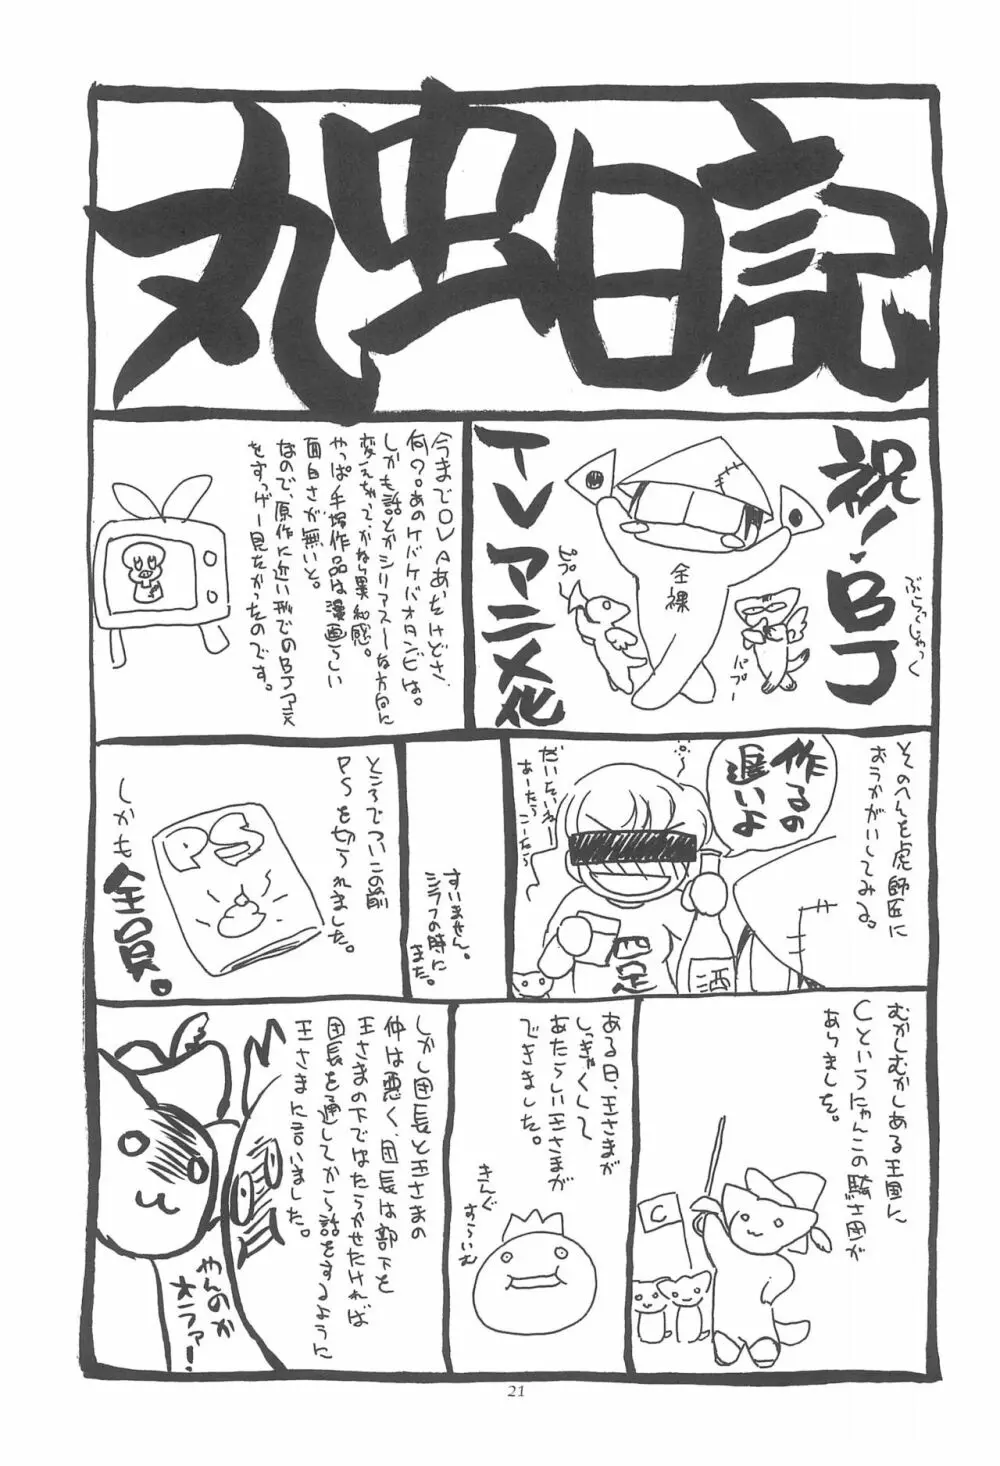 丸虫日記
祝！BJ
ぶらっくじゃっく
TVアニメ化
全裸
ピプー
パプー
今までOVAあったけどさ、
何？あのケバケバオタンビは。
しかも話とかシリアスーな方向に
変えちゃってかなり異和感。
やっぱ手塚作品は漫画らしい
面白さが無いと。
なので、原作に近い形でのBJアニメ
をすっげー見たかったのです。
そのへんを虎師匠に
おうかがいしてみる。
作るの
遅いよ
だいたいねー
あーたらこーたら
四足
酒
すいません。
シラフの時に
また。
ところでついこの前
PSを切られました。
PS
しかも
全員。
むかしむかしある王国に
Cというにゃんこの騎士団が
ありました。
C
ある日、王さまが
しっきゃくし〜
あたらしい王さまが
できました。
きんぐ
すらいむ
しかし団長と王さまの
仲は悪く、団長は部下を
王さまの下ではたらかせたければ
団長を通してから話をするように
王さまに言いました。
やんのか
オラァー！
21